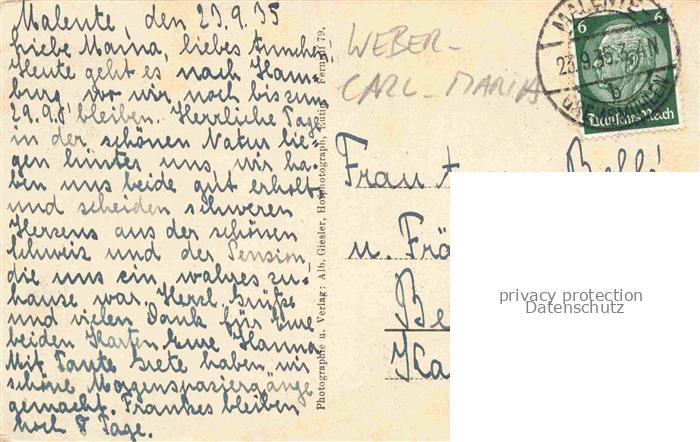 Malente, den 23.9.35
Liebe Mama, liebes Annche
Heute geht es nach Ham-
burg wo wir noch bis zum
29.9. bleiben. Herrliche Tage
in der schönen Natur lie-
gen hinter uns wir ha-
ben uns beide gut erholt
und scheiden schweren
Herzens aus der schönen
Schweiz und der Pension,
die uns ein wahres zu-
hause war. Herzl. Grüße
und vielen Dank für Eure
beiden Karten Eure Hanna
Mit Tante Grete haben wir
schöne Morgenspaziergänge
gemacht. Frankes bleiben
noch 8 Tage.
Photographie u. Verlag: Alb. Giesler, Hofphotograph, Eutin, Fernruf 79.
WEBER-
CARL-MARIA
MALENTE
23.9.35.
b
6 6
Deutsches Reich
Frau
u. Frä
Be
Ka
privacy protection
Datenschutz